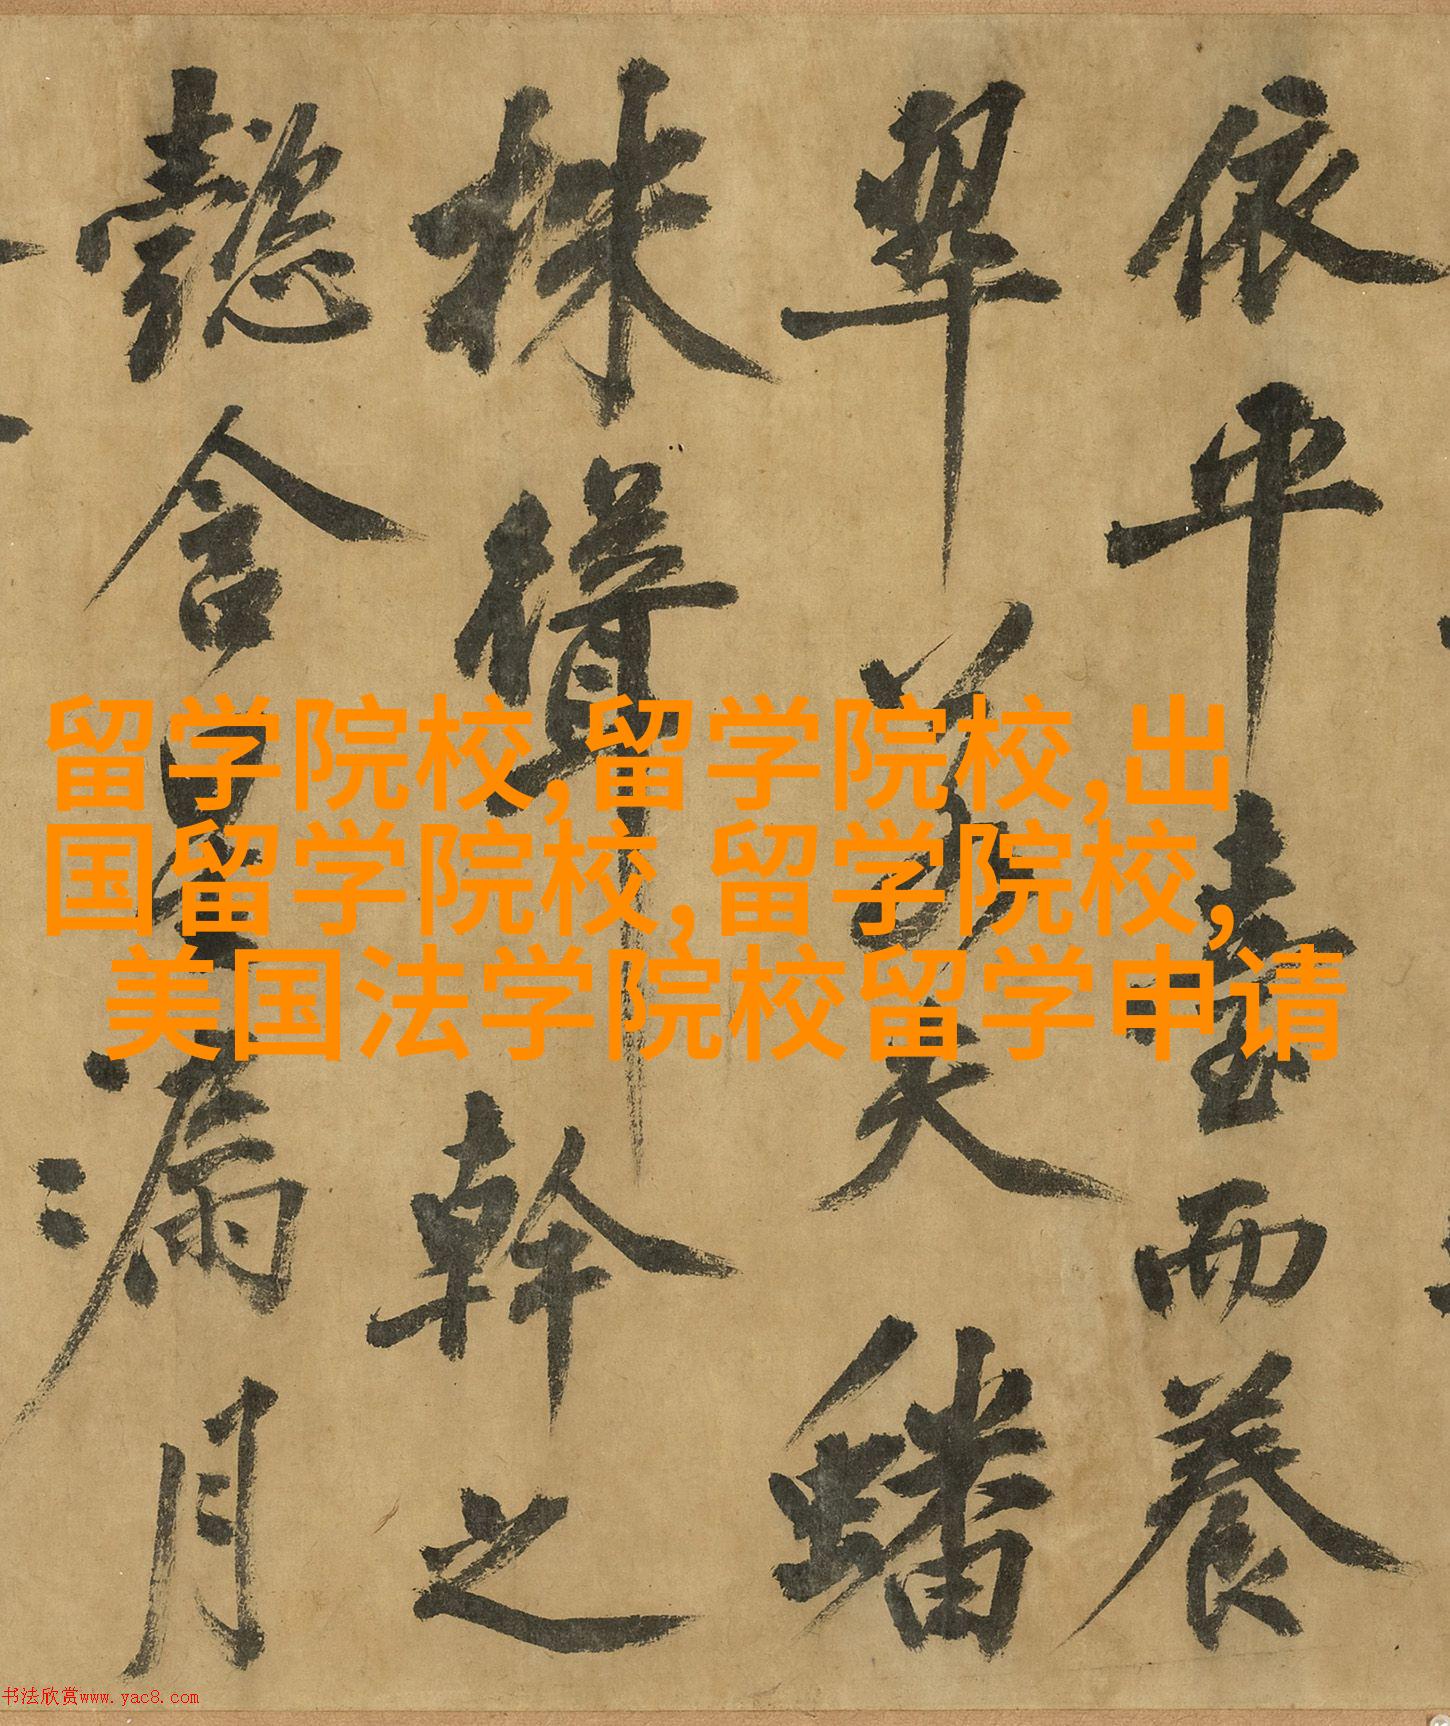 依平臺而養
翠若夫蟠
株聳幹之
懿含星漏月
留学院校,留学院校,出
国留学院校,留学院校,
美国法学院校留学申请
书法欣赏www.yac8.com